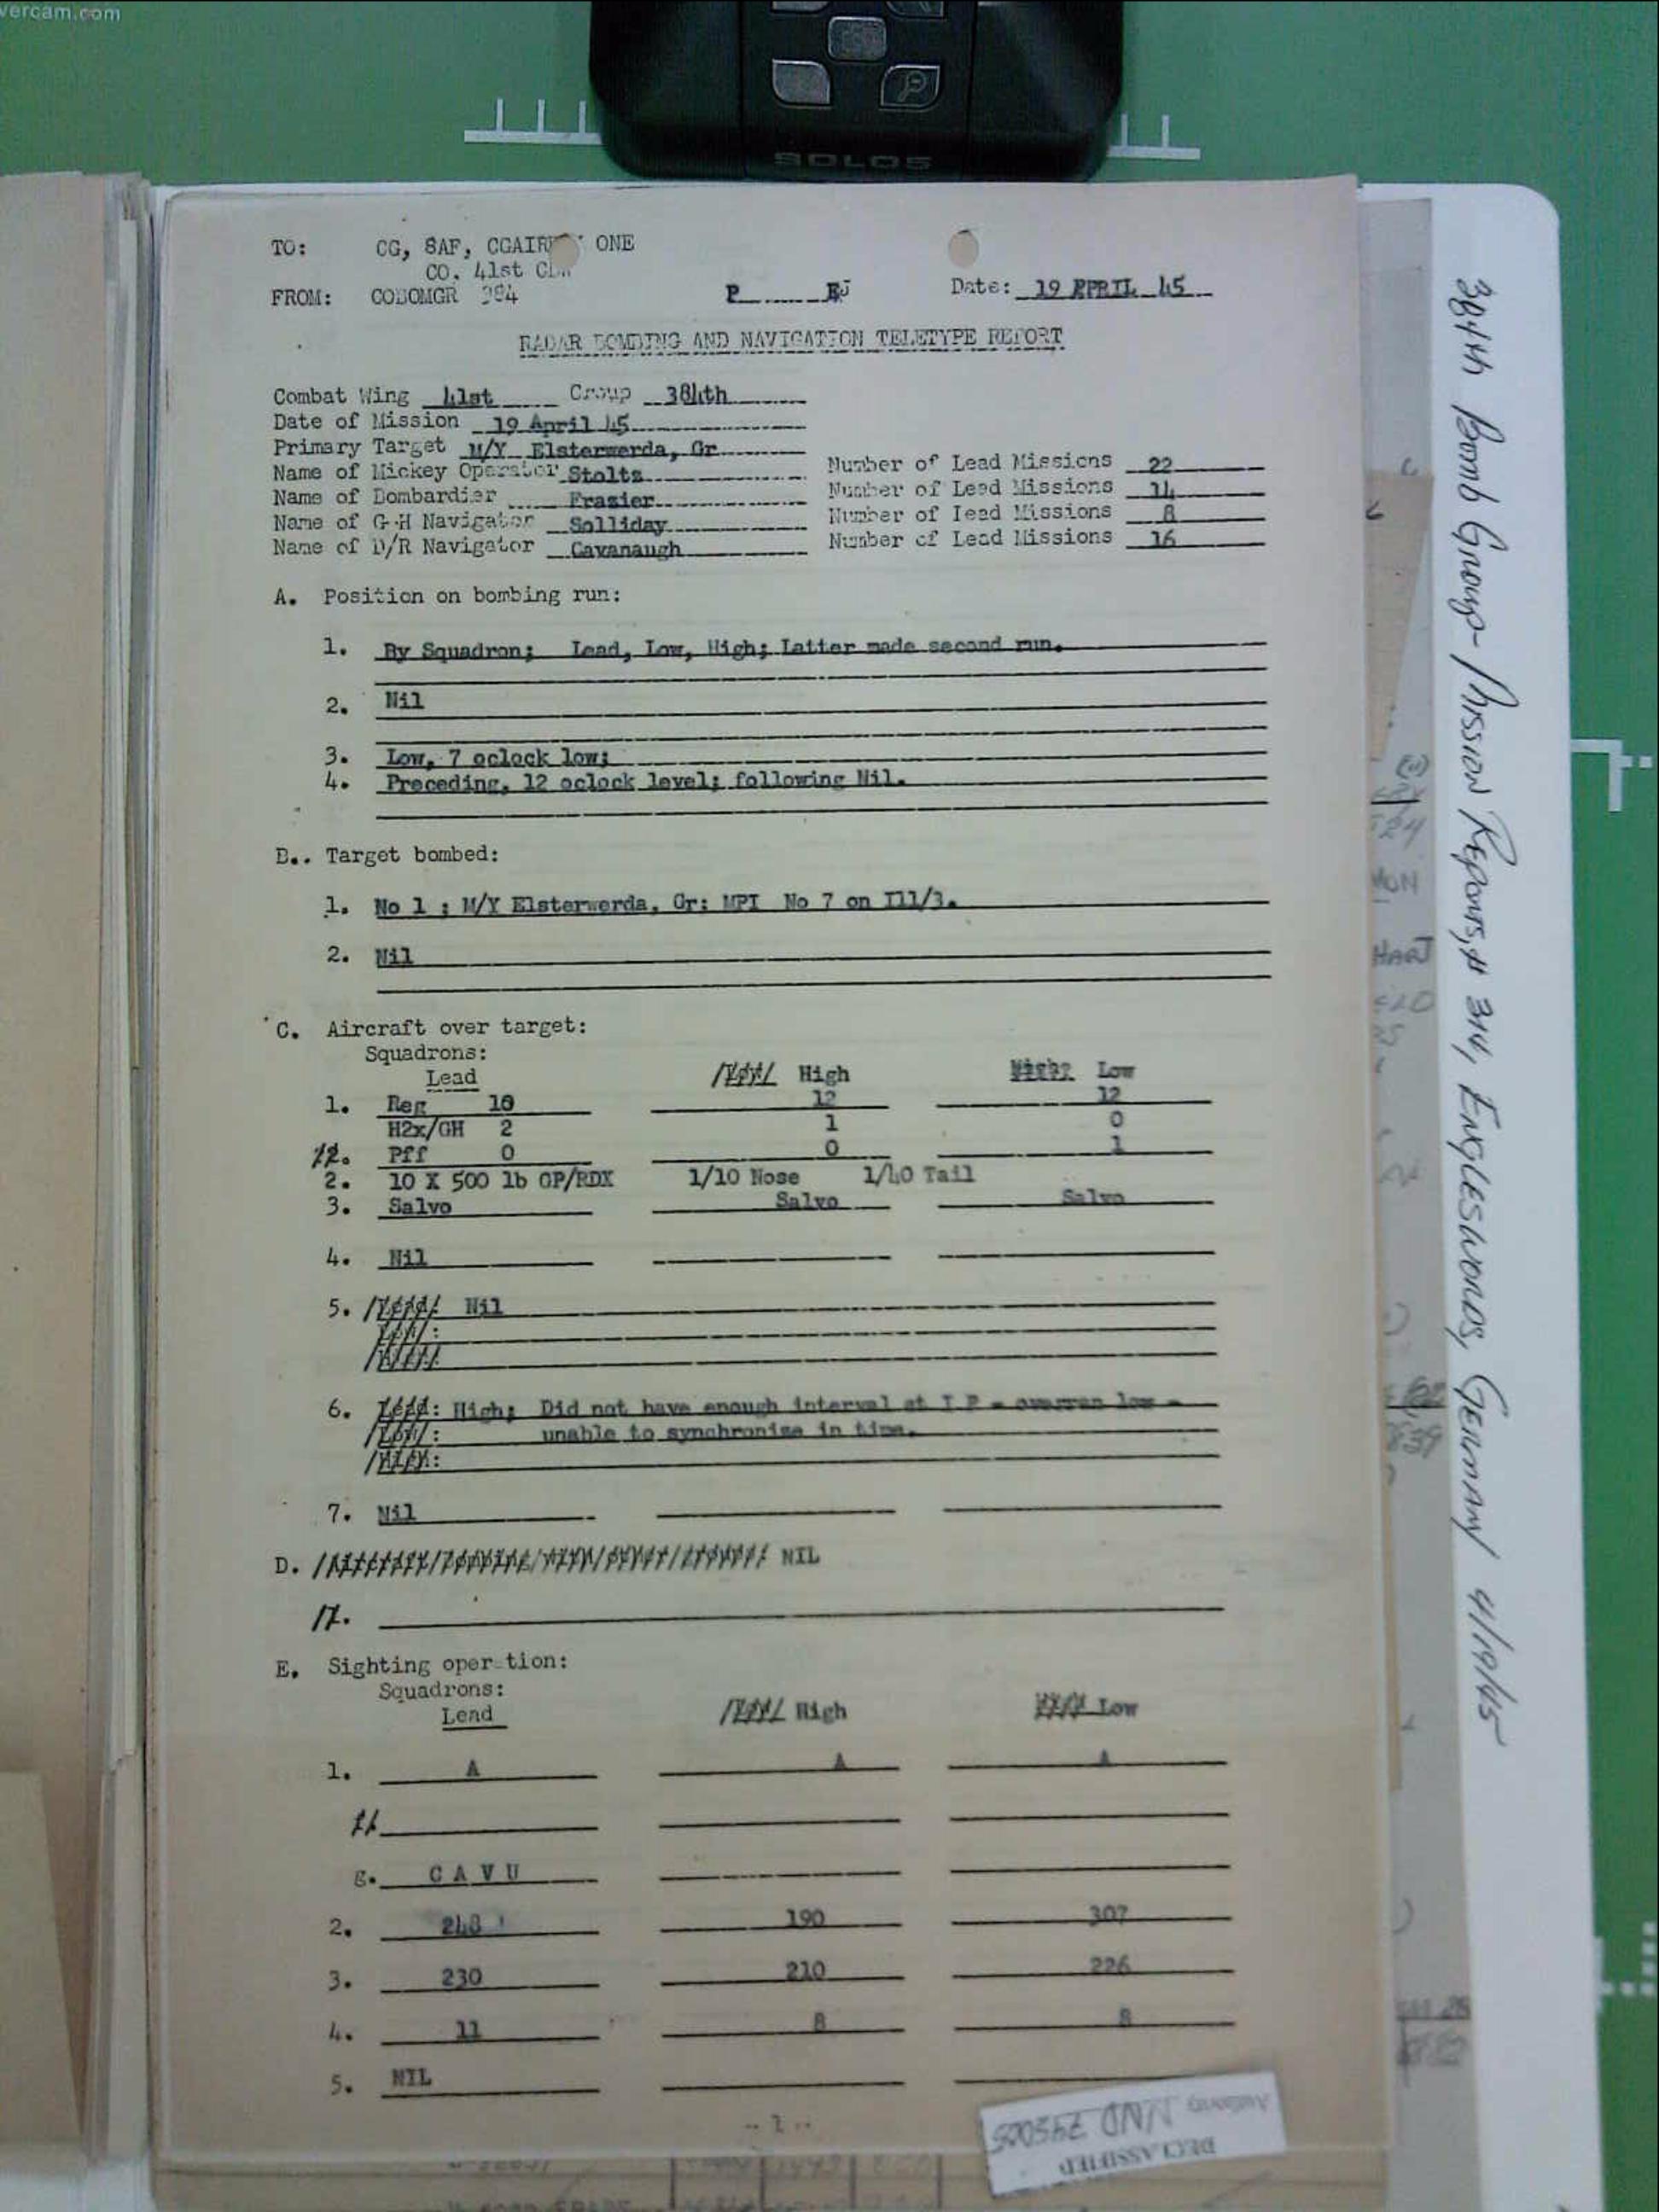 vercam.com
SOLOS
TO: CG, 8AF, ONE
CO. 41st
FROM: COBOMGR 384 P E Date: 19 APRIL 45
RADAR BOMBING AND NAVIGATION TELETYPE REPORT
Combat Wing 41st Group 384th
Date of Mission 19 April 45
Primary Target M/Y Elsterwerda, Gr
Name of Mickey Operator Stolts Number of Lead Missions 22
Name of Bombardier Frasier Number of Lead Missions 14
Name of G-H Navigator Solliday Number of Lead Missions 8
Name of D/R Navigator Cavanaugh Number of Lead Missions 16
A. Position on bombing run:
1. By Squadron; Lead, Low, High; Latter made second run.
2. Nil
3. Low, 7 oclock low;
4. Preceding, 12 oclock level; following Nil.
B.. Target bombed:
1. No 1 ; M/Y Elsterwerda, Gr: MPI No 7 on Ill/3.
2. Nil
C. Aircraft over target:
Squadrons:
Lead High Low
1. Reg 10 12 12
H2x/GH 2 1 0
Pff 0 0 1
2. 10 X 500 lb GP/RDX 1/10 Nose 1/40 Tail
3. Salvo Salvo Salvo
4. Nil
5. Nil
6. High; Did not have enough interval at I P - overran low -
unable to synchronise in time.
7. Nil
D. NIL
E. Sighting oper tion:
Squadrons:
Lead High Low
1. A A A
g. C A V U
2. 248 190 307
3. 230 210 226
4. 11 8 8
5. NIL
- 1 -
DECLASSIFIED
Authority NND 745005
384th Bomb Group- Mission Reports, # 314, Engleswords, Germany 4/19/45